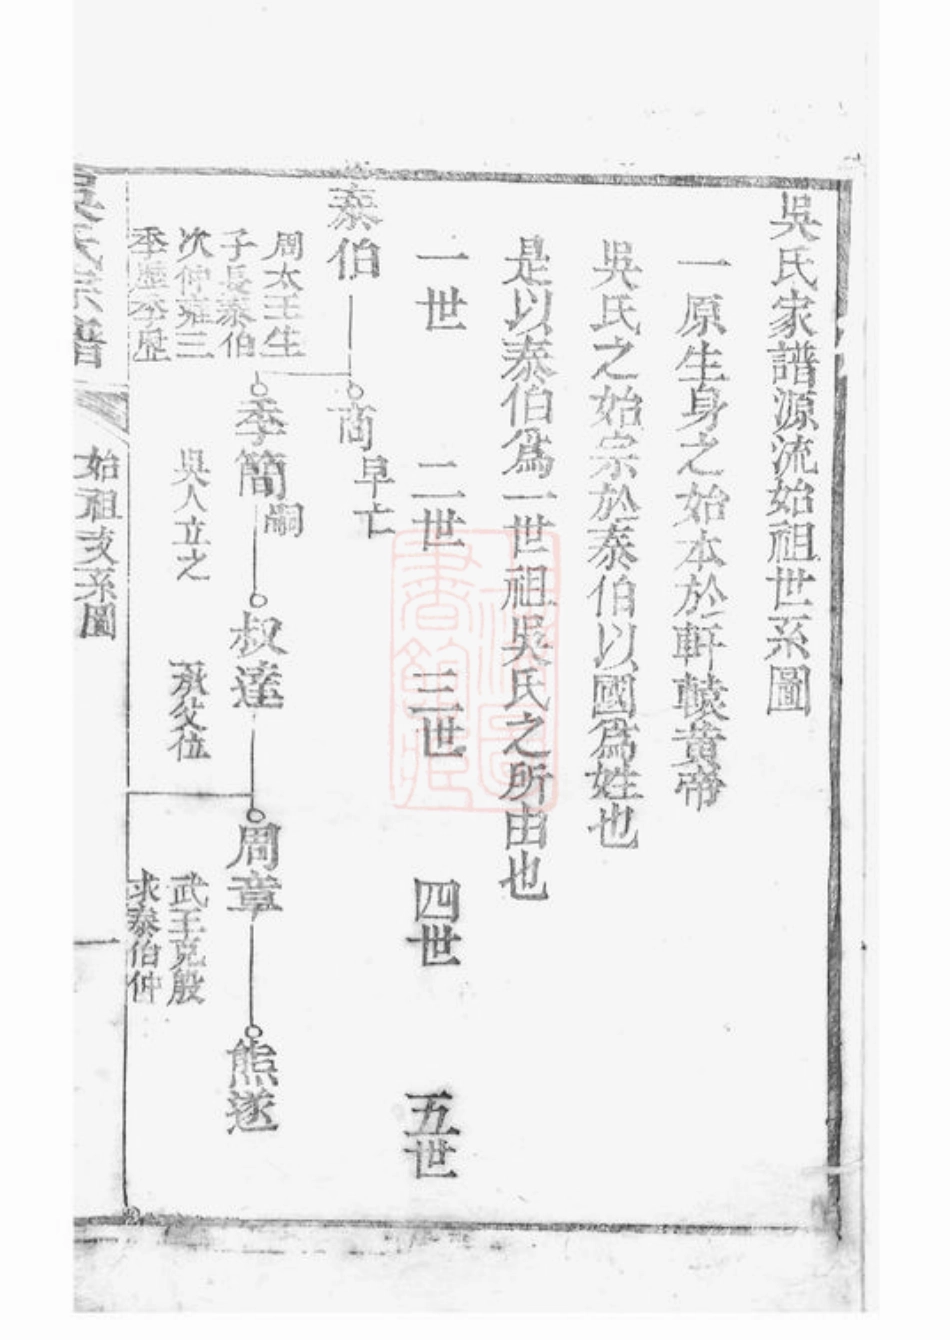 吳氏家譜源流始祖世系圖
一原生身之始本於軒轅黃帝
吳氏之始宗於泰伯以國為姓也
是以泰伯為一世祖吳氏之所由也
一世
二世
三世
四世
五世
泰伯
商早亡
周太王生
子長泰伯
次仲雍三
季歷季歷
季簡嗣
叔達
周章
熊遂
吳人立之
承父位
武王克殷
求泰伯仲
吳氏宗譜
始祖支系圖
一